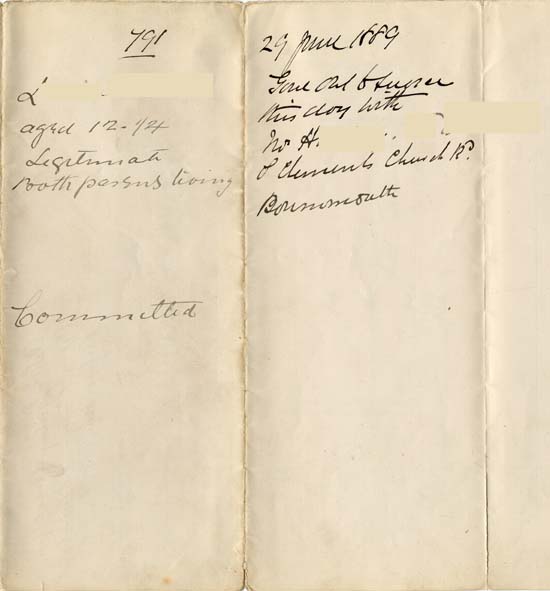 791
L
aged 12-1/4
Legitimate
Both parents living
Committed
29 June 1889
Gone out to Service
this day with
Mrs H.
St Clements Church Rd.
Bournemouth